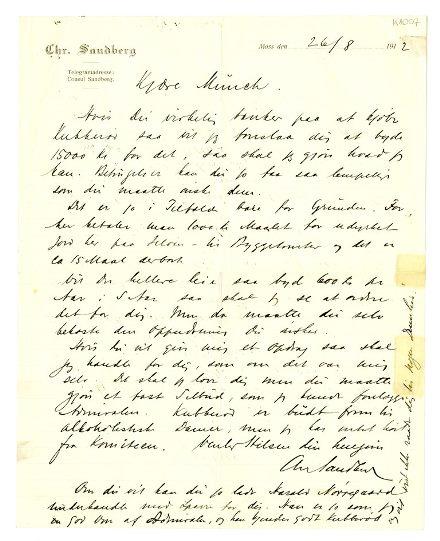 K1007
Chr. Sandberg
Telegramadresse:
Consul Sandberg.
Moss den 26/8 1912
Kjære Munch.
Hvis du virkelig tænker paa at kjøbe
Kubberød saa vil jeg foreslaa dig at byde
15000 kr. for det, saa skal jeg gjøre hvad jeg
kan. Betingelser kan du jo faa saa lempelige
som du maatte ønske dem.
Det er jo i Tilfælde bare for Grunden. For
her betaler man 1000 kr Maalet for udyrket
Jord her paa Jeløen til Byggetomter og det er
ca 15 Maal derbort.
Vil du hellere leie saa byd 600 kr pr
Aar i 5 Aar saa skal jeg se at ordne
det for dig. Men da maatte du selv
bekoste den Oppudsning du ønsker.
Hvis du vil give mig et Opdrag saa skal
jeg handle for dig, som om det var mig
selv. Det skal jeg love dig men du maatte
gjøre et fast Tilbud, som jeg kunde forelægge
Admiralen. Kubberød er budt frem til
alkoholistiske Damer, men jeg har intet hørt
fra Komiteen. Venlig Hilsen din hengivne
Chr Sandberg
Om du vil kan du jo lade Harald Nørregaard
underhandle med Eieren for dig. Han er jo som jeg
en god Ven af Admiralen, og han kjender godt Kubberød